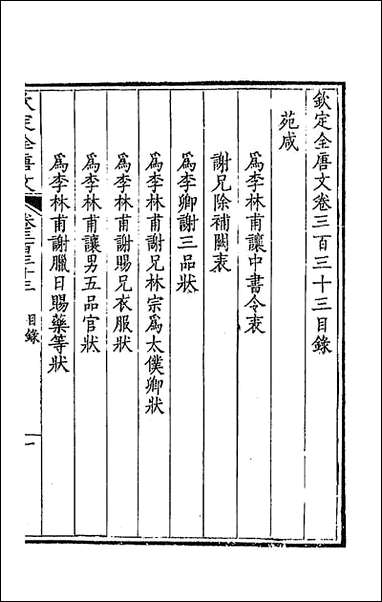 欽定全唐文卷三百三十三目錄
苑咸
爲李林甫讓中書令表
謝兄除補闕表
爲李卿謝三品狀
爲李林甫謝兄林宗爲太僕卿狀
爲李林甫謝賜兄衣服狀
爲李林甫讓男五品官狀
爲李林甫謝臘日賜藥等狀
欽定全唐文 卷三百三十三 目錄 一